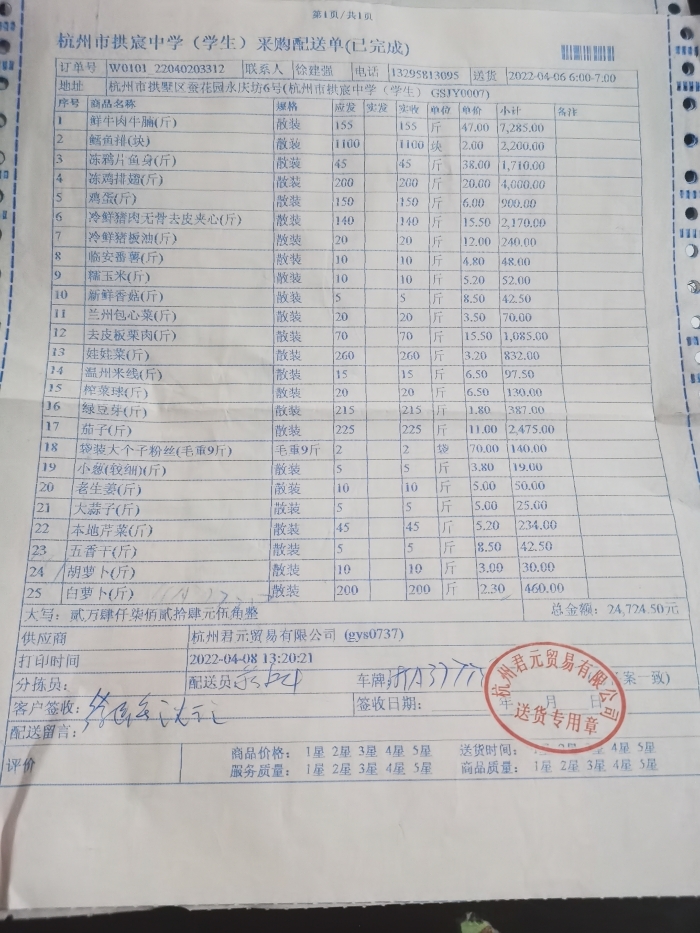 第1页/共1页
杭州市拱宸中学（学生）采购配送单(已完成)
订单号 W0101 22040203312 联系人 徐建强 电话 13295813095 送货 2022-04-06 6:00-7:00
地址 杭州市拱墅区蚕花园永庆坊6号(杭州市拱宸中学（学生） GSJY0007)
序号 商品名称 规格 应发 实发 实收 单位 单价 小计 备注
1 鲜牛肉牛腩(斤) 散装 155 155 斤 47.00 7,285.00
2 鳕鱼排(块) 散装 1100 1100 块 2.00 2,200.00
3 冻鸦片鱼身(斤) 散装 45 45 斤 38.00 1,710.00
4 冻鸡排翅(斤) 散装 200 200 斤 20.00 4,000.00
5 鸡蛋(斤) 散装 150 150 斤 6.00 900.00
6 冷鲜猪肉无骨去皮夹心(斤) 散装 140 140 斤 15.50 2,170.00
7 冷鲜猪板油(斤) 散装 20 20 斤 12.00 240.00
8 临安番薯(斤) 散装 10 10 斤 4.80 48.00
9 糯玉米(斤) 散装 10 10 斤 5.20 52.00
10 新鲜香菇(斤) 散装 5 5 斤 8.50 42.50
11 兰州包心菜(斤) 散装 20 20 斤 3.50 70.00
12 去皮板栗肉(斤) 散装 70 70 斤 15.50 1,085.00
13 娃娃菜(斤) 散装 260 260 斤 3.20 832.00
14 温州米线(斤) 散装 15 15 斤 6.50 97.50
15 榨菜球(斤) 散装 20 20 斤 6.50 130.00
16 绿豆芽(斤) 散装 215 215 斤 1.80 387.00
17 茄子(斤) 散装 225 225 斤 11.00 2,475.00
18 袋装大个子粉丝(毛重9斤) 毛重9斤 2 2 袋 70.00 140.00
19 小葱(较细)(斤) 散装 5 5 斤 3.80 19.00
20 老生姜(斤) 散装 10 10 斤 5.00 50.00
21 大蒜子(斤) 散装 5 5 斤 5.00 25.00
22 本地芹菜(斤) 散装 45 45 斤 5.20 234.00
23 五香干(斤) 散装 5 5 斤 8.50 42.50
24 胡萝卜(斤) 散装 10 10 斤 3.00 30.00
25 白萝卜(斤) 散装 200 200 斤 2.30 460.00
大写：贰万肆仟柒佰贰拾肆元伍角整 总金额：24,724.50元
供应商 杭州君元贸易有限公司 (gys0737)
打印时间 2022-04-08 13:20:21
分拣员： 配送员 车牌 案一致)
客户签收： 签收日期： 年 月 日
杭州君元贸易有限公司
送货专用章
配送留言：
评价 商品价格： 1星 2星 3星 4星 5星 送货时间： 4星 5星
服务质量： 1星 2星 3星 4星 5星 商品质量： 1星 2星 3星 4星 5星